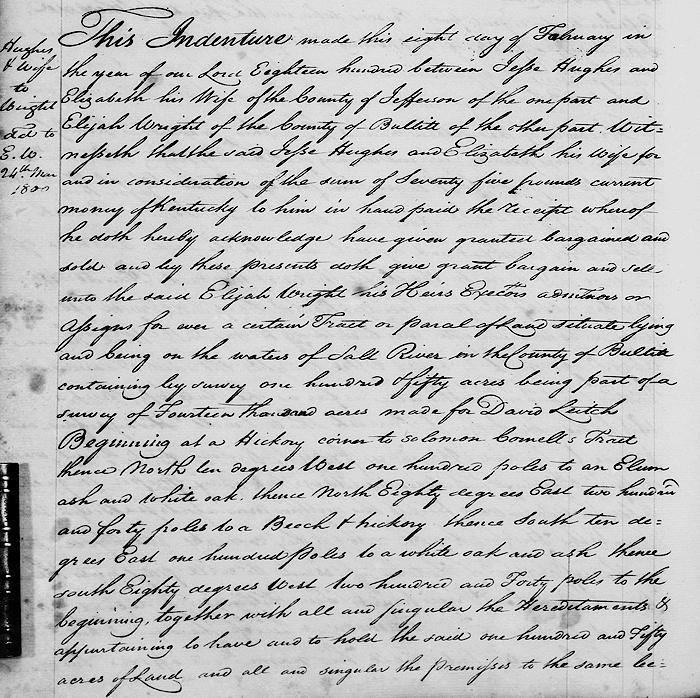 Hughes
& Wife
to
Wright
del to
E. W.
24th Mar
180
This Indenture made this eight day of February in
the year of our Lord Eighteen hundred between Jesse Hughes and
Elizabeth his Wife of the County of Jefferson of the one part and
Elijah Wright of the County of Bullitt of the other part. Wit-
nesseth that the said Jesse Hughes and Elizabeth his Wife for
and in consideration of the sum of Seventy five pounds current
money of Kentucky to him in hand paid the receipt whereof
he doth hereby acknowledge have given granted bargained and
sold and by these presents doth give grant bargain and sell
unto the said Elijah Wright his Heirs Exectors admtnors or
assigns for ever a certain Tract or parcal of Land situate lying
and being on the waters of Salt River in the County of Bullitt
containing by survey one hundred & fifty acres being part of a
survey of Fourteen thousand acres made for David Leitch
Beginning at a Hickory corner to solomon Cornell's Tract
thence North ten degrees West one hundred poles to an Elum
ash and white oak. thence North Eighty degrees East two hundred
and forty poles to a Beech & hickory thence south ten de=
grees East one hundred Poles to a white oak and ash thence
south Eighty degrees West two hundred and Forty poles to the
beginning, together with all and singular the Hereditaments &
appurtaining to have and to hold the said one hundred and Fifty
acres of Land and all and singular the premisses to the same be=